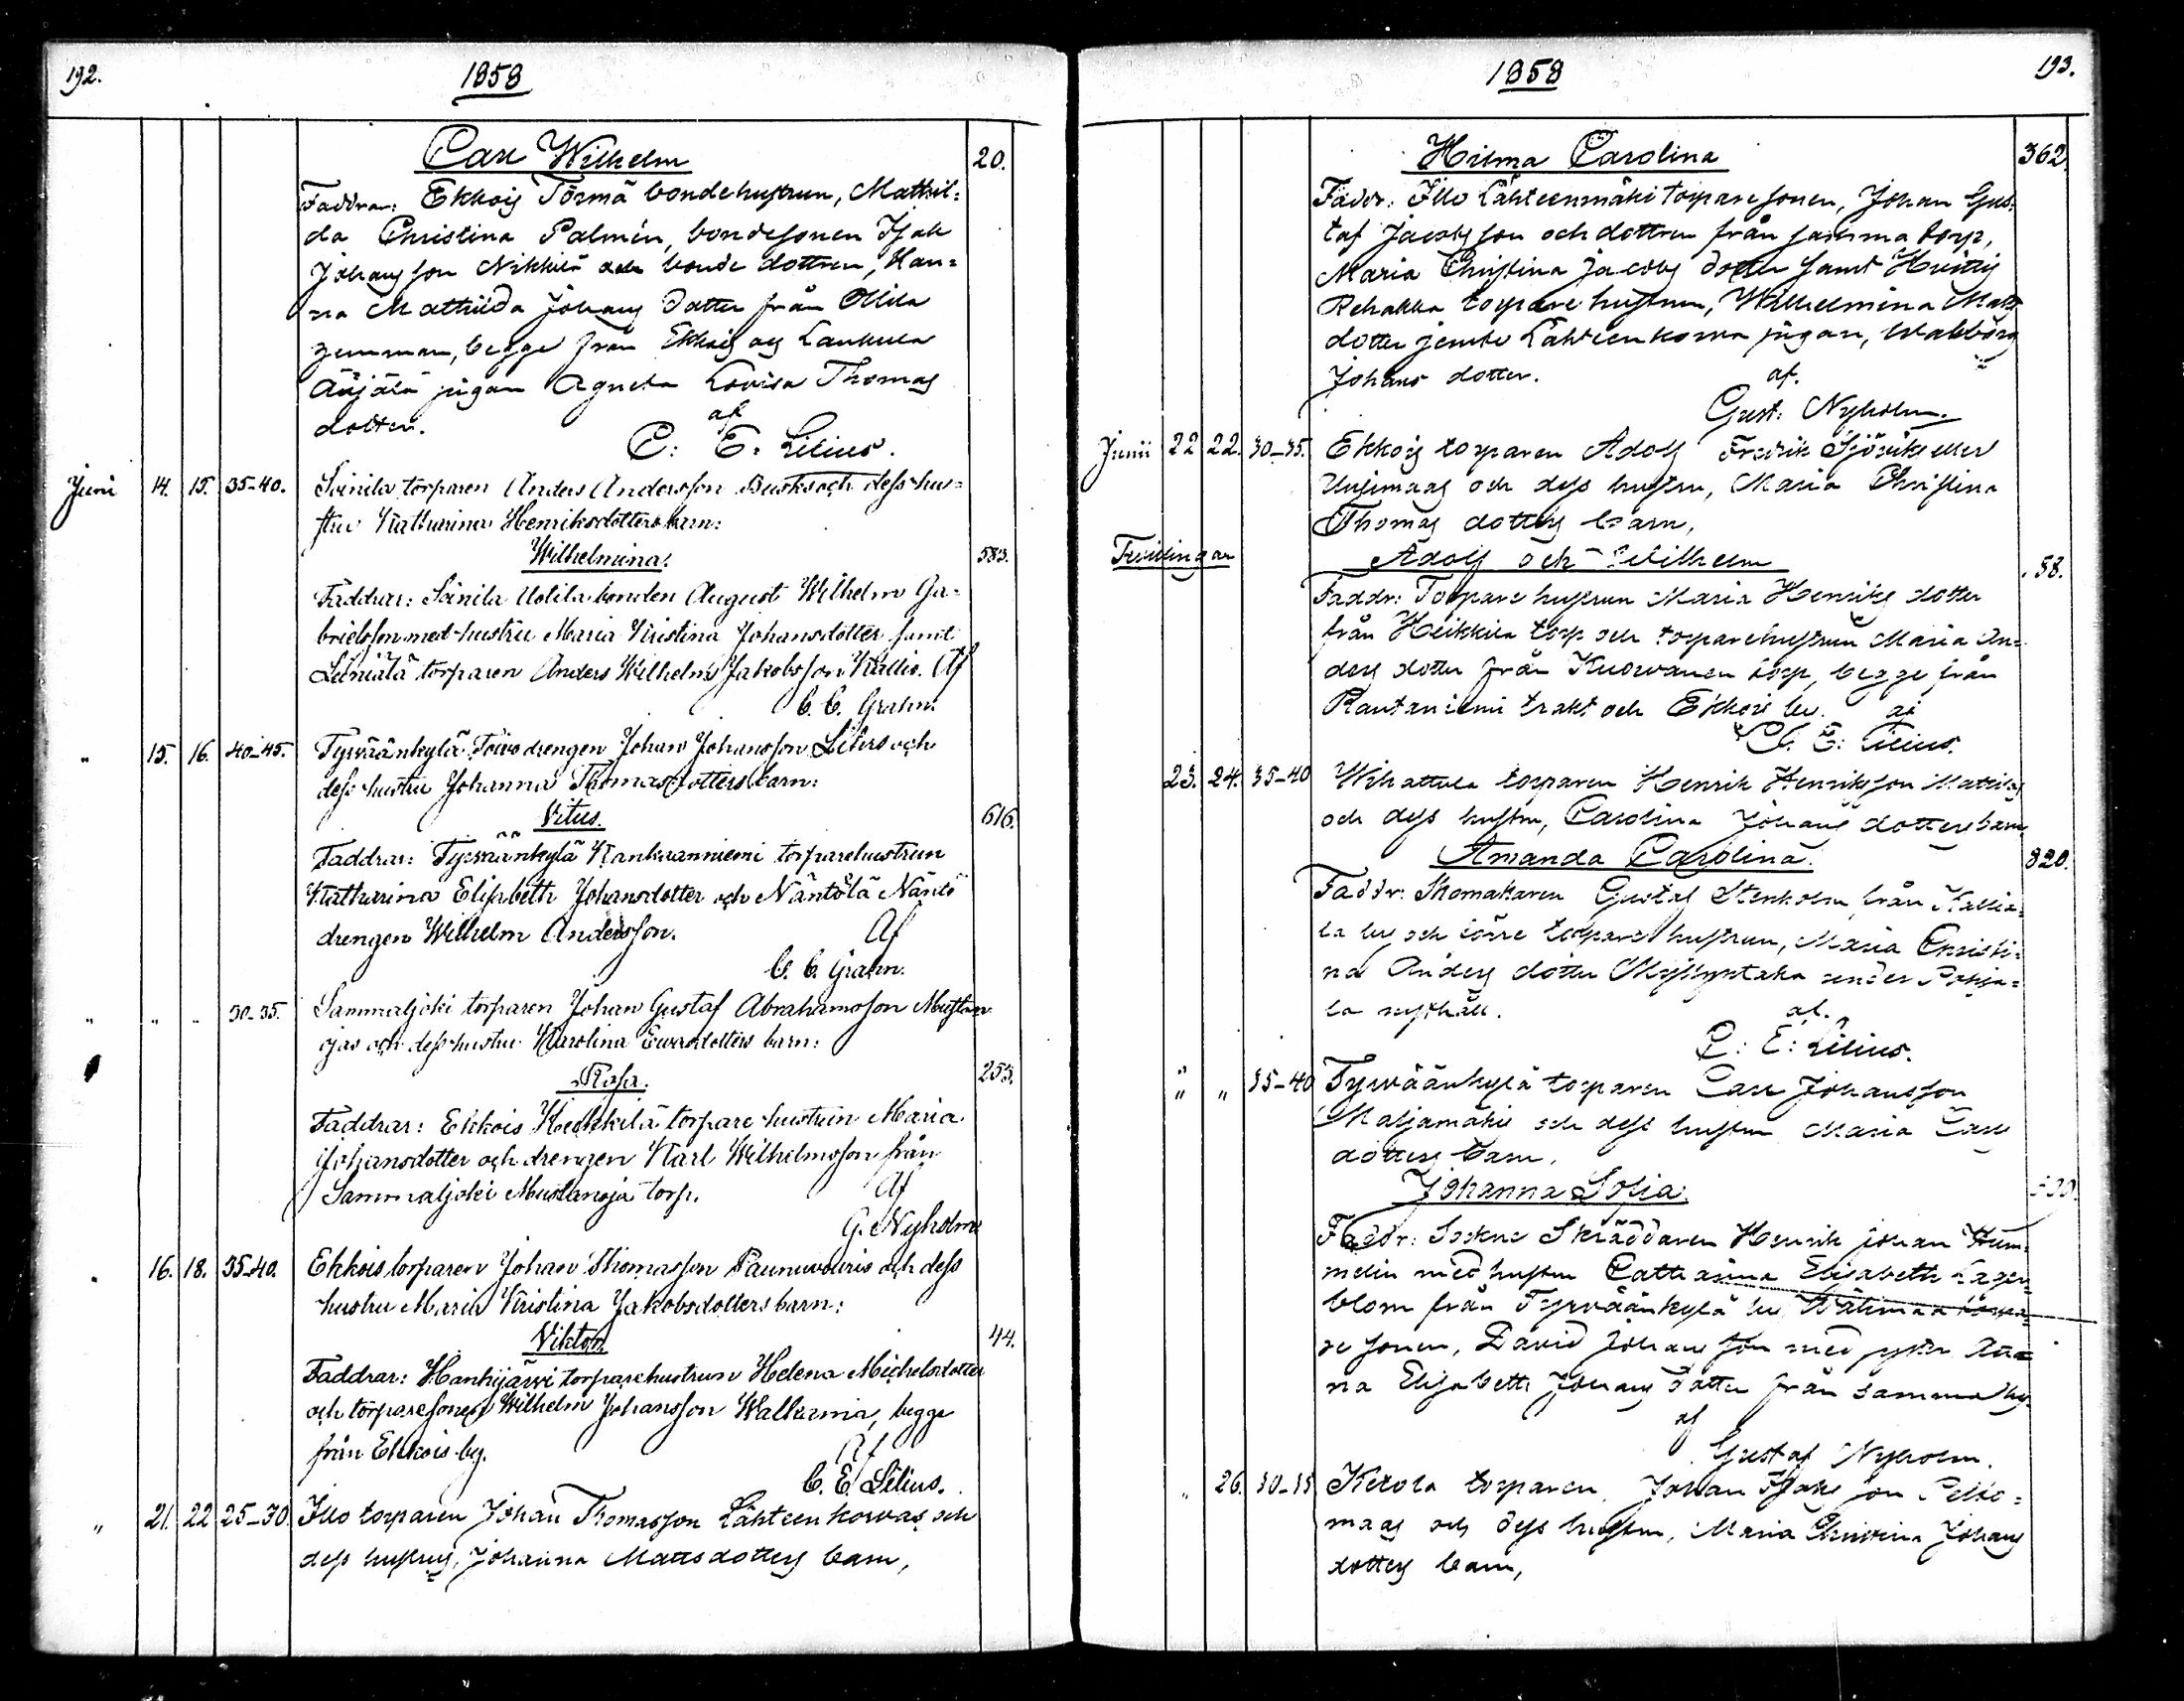 192.
1858
Carl Wilhelm 20.
Faddrar: Ekkois Törmä bondehustrun, Mathil=
da Christina Palmén, bondesonen Isak
Johansson Nikkilä och bonde dottren, Han=
na Mathilda Johans dotter från Ollila
hemman, begge från Ekkois och Laukula
Äijälä pigan Agneta Lovisa Thomas
dotter. af
C: E: Lilius.
Juni 14. 15. 35-40. Soinila torparen Anders Andersson Busks och dess hu=
stru Katharina Henriksdotters barn:
Wilhelmina. 583.
Faddrar: Soinila Uotila bonden August Wilhelm Ga=
brielsson med hustru Maria Kristina Johansdotter samt
Leiniälä torparen Anders Wilhelm Jakobsson Kallio. Af
C. C. Grahn.
" 15. 16. 40-45. Tyrväänkylä Toivo drengen Johan Johansson Liters och
dess hustru Johanna Thomasdotters barn:
Vitus. 616.
Faddrar: Tyrväänkylä Kankaanniemi torparehustrun
Katharina Elisabeth Johansdotter och Näntölä Näntö
drengen Wilhelm Andersson. Af
C. C. Grahn.
" " " 30-35. Sammaljoki torparen Johan Gustaf Abrahamsson Mustan
ojas och dess hustru Karolina Evasdotters barn:
Rosa. 253.
Faddrar: Ekkois Heikkilä torpare hustrun Maria
Johansdotter och drengen Karl Wilhelmsson från
Sammaljoki Mustanoja torp. Af
G. Nyholm
" 16. 18. 35-40. Ekkois torparen Johan Thomasson Paunuvuoris och dess
hustru Maria Kristina Jakobsdotters barn:
Viktor 44.
Faddrar: Hankijärvi torparehustrun Helena Michelsdotter
och torparesonen Wilhelm Johansson Walkama, begge
från Ekkois by. Af
C. E. Lilius.
" 21. 22 25-30. Illo torparen Johan Thomasson Lähteenkorvas och
dess hustrus, Johanna Mattsdotters barn,
1858
193.
Hilma Carolina 362
Faddr: Illo Lähteenmäki torparesonen, Johan Gus=
taf Jacobsson och dottren från samma torp,
Maria Christina Jacobs dotter samt
torpare hustrun, Wilhelmina Matts
dotter jemte Lähteenkorva pigan, Walborg
Johans dotter. af.
Gust: Nyholm.
Junii 22 22. 30-35. Ekkois torparen Adolf Fredrik Sjövik eller
Uusimaas och dess hustru, Maria Christina
Thomas dotters barn,
Tvillingar Adolf och Wilhelm 58.
Faddr: Torpare hustrun Maria Henriks dotter
från Heikkilä torp och torparehustrun Maria An=
ders dotter från Kuorvanen torp, begge från
Rautaniemi trakt och Ekkois by. af
C. E: Lilius.
23. 24. 35-40 Wihattula torparen Henrik Henriksson Mattilas
och dess hustru, Carolina Johans dotters barn,
Amanda Carolina. 320.
Faddr: Skomakaren Gustaf Stenholm från Kallia=
la by och torpare hustrun, Maria Christi=
na Anders dotter Myllyntaka under Pohja=
la rusthåll. af.
C: E: Lilius.
" " 35-40 Tyrväänkylä torparen Carl Johansson
Maljamäki och dess hustru Maria Carls
dotters barn,
Johanna Sofia.
Faddr: Sockne Skräddaren Henrik Johan Hum=
melin med hustru Catharina Elisabeth Lager=
blom från Tyrväänkylä by, Wälimaa torpa=
re sonen, David Johansson med syster An=
na Elisabeth Johans dotter från samma by.
af
Gustaf Nyholm.
" 26. 30-35 Ketola torparen Johan Isaks son Pelto=
maas och dess hustru, Maria Christina Johans
dotters barn,